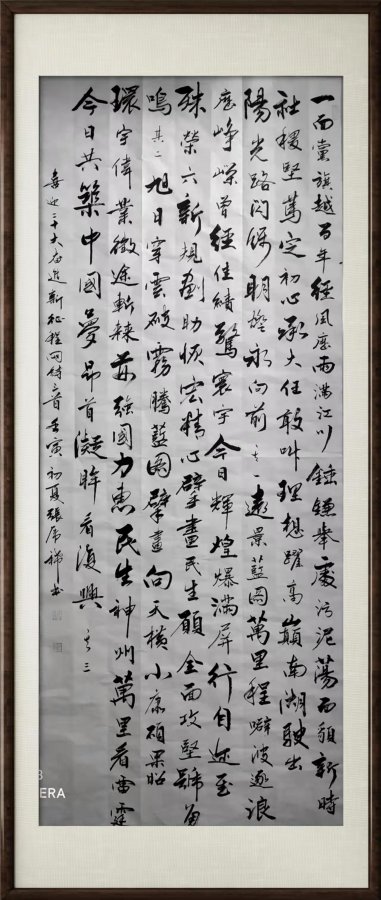 一面黨旗越百年經風歷雨滿江川錘鐮舉處污泥蕩百領新時
社稷堅篤定初心承大任敢叫理想躍高巔南湖駛出
陽光路閃爍明燈永向前其一遠景藍圖萬里程噼波逐浪
歷崢嶸曾經佳績驚寰宇今日輝煌爆滿屏行自迩至
殊榮六新規劃助恢宏精心擘畫民生願全面攻堅號角
鳴其二旭日穿雲破霧騰藍圖擘畫向天橫小康碩果昭
環宇偉業徵途斬棘荊強國力惠民生神州萬里看雷霆
今日共築中國夢昂首凝眸看復興其三
喜迎二十大奋進新征程同詩三首壬寅初夏張席梯書
3
ERA